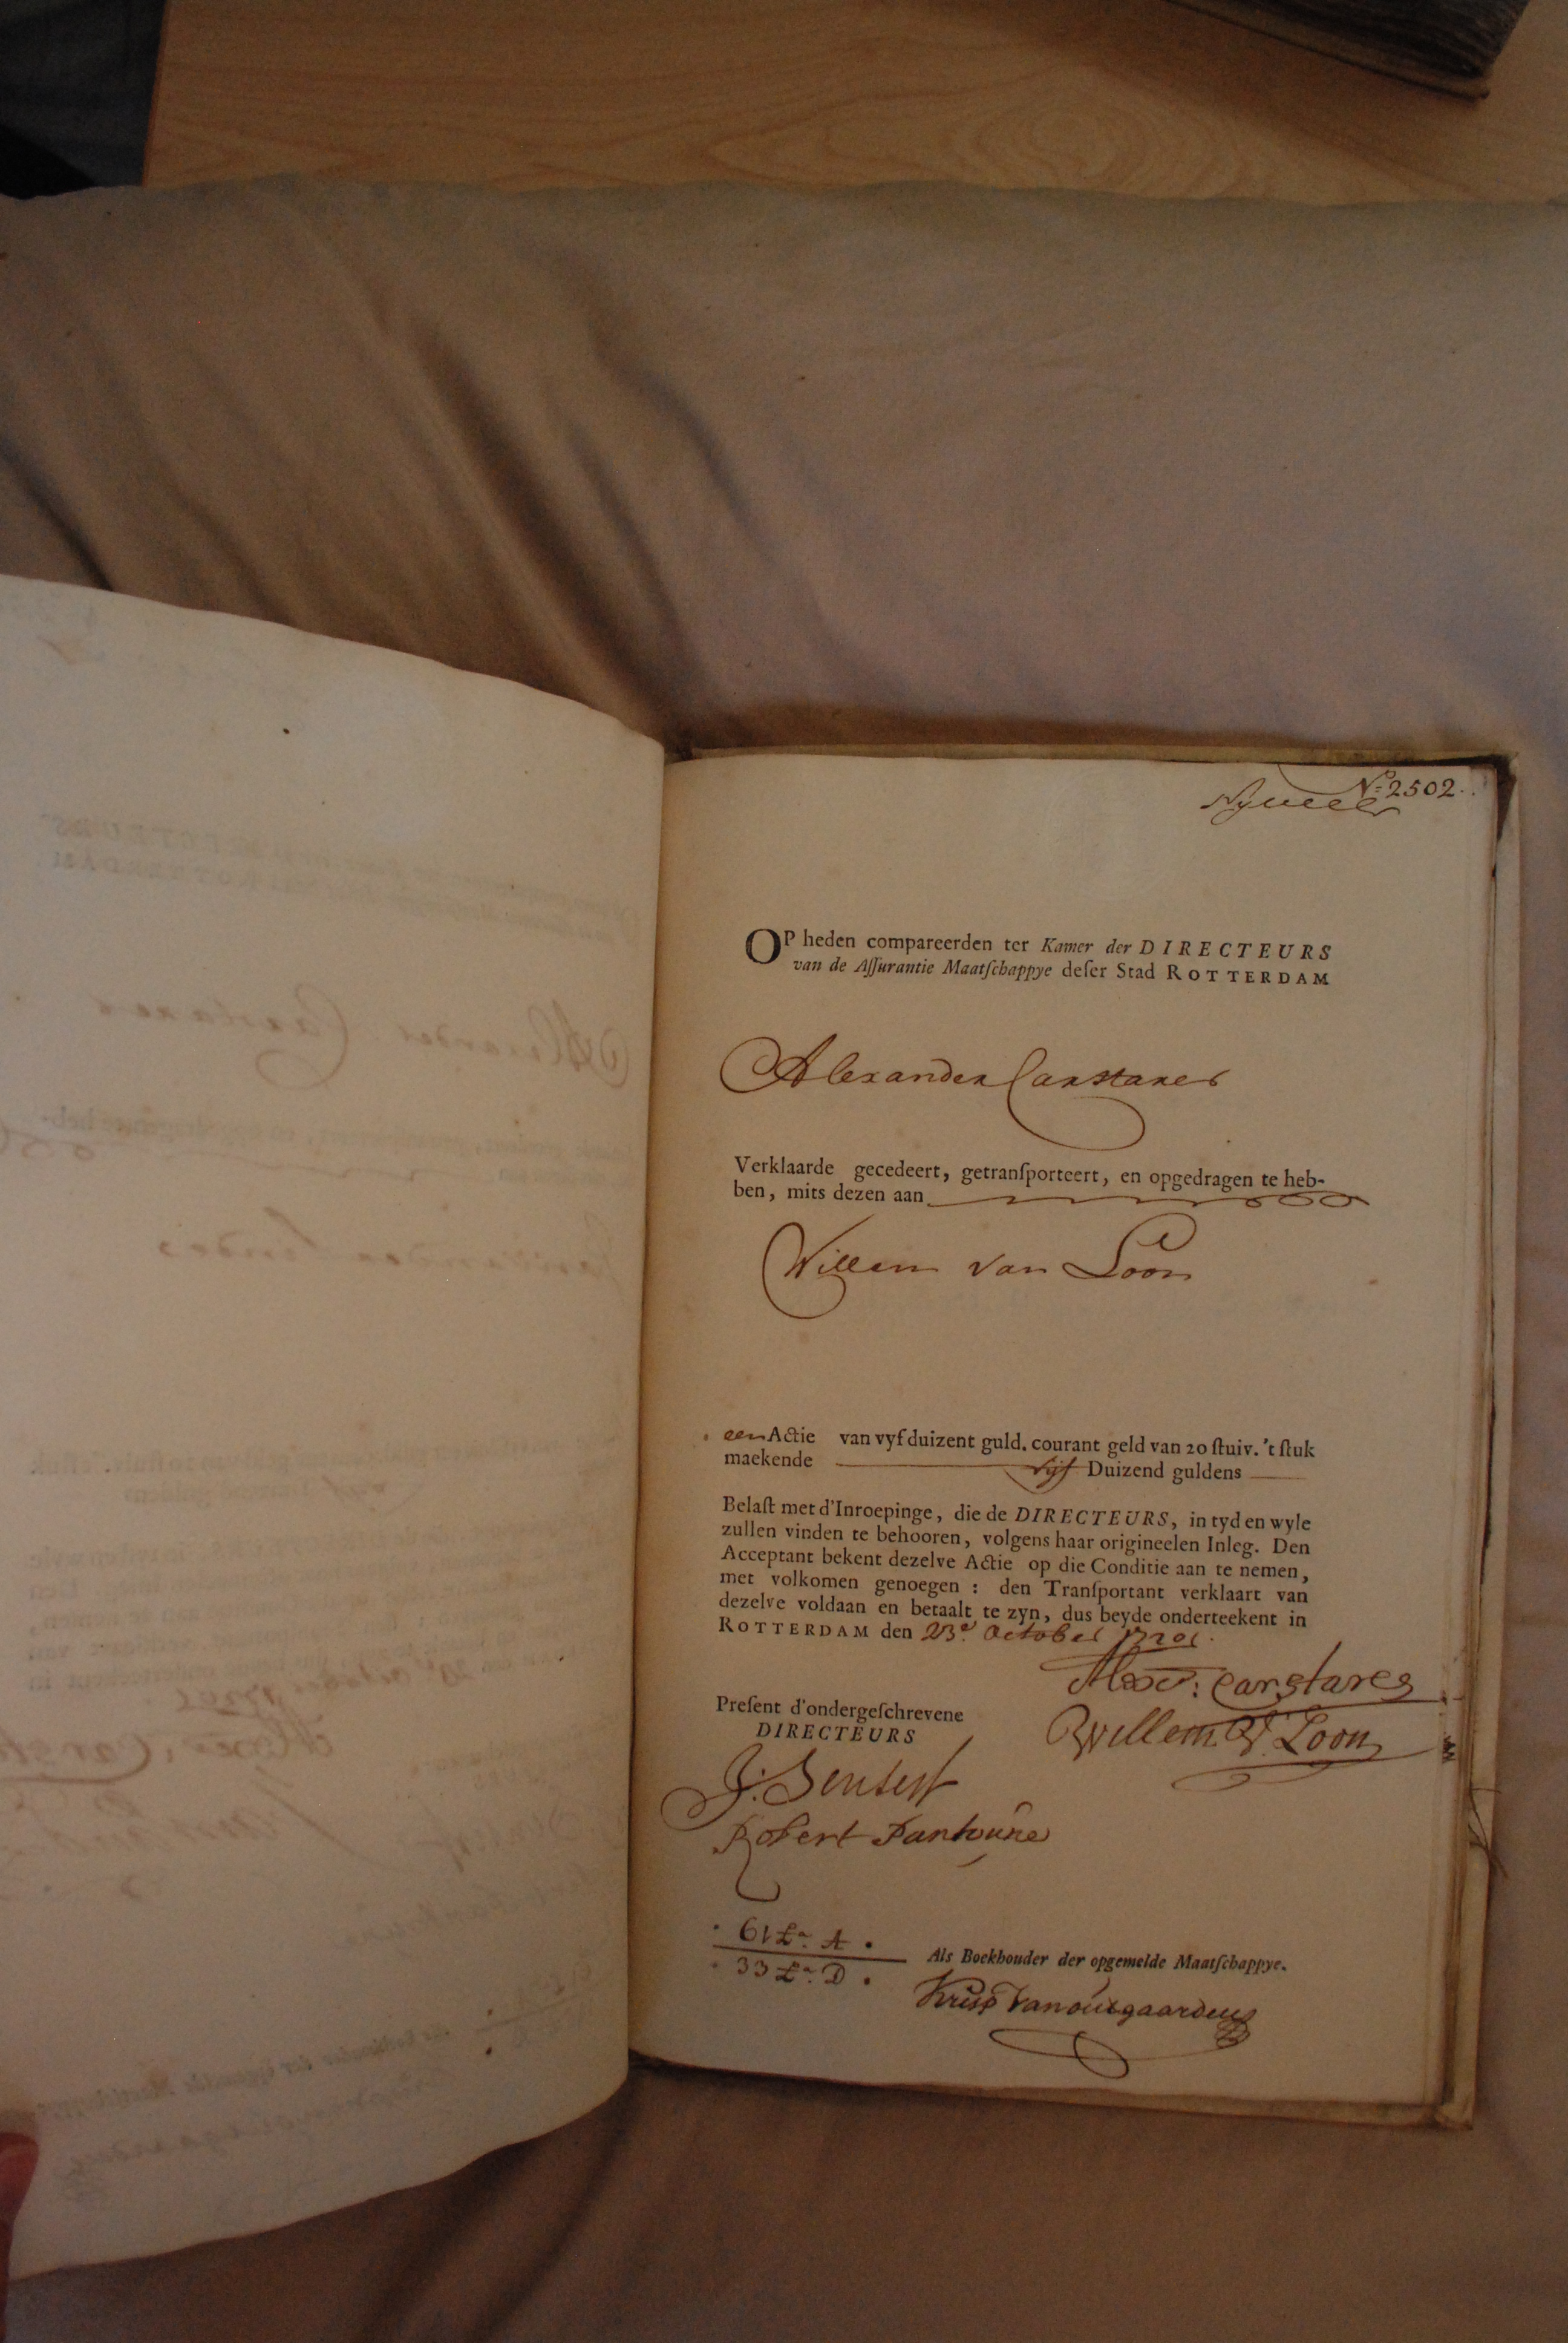 Nº 2502.
OP heden compareerden ter Kamer der DIRECTEURS
van de Aſſurantie Maatſchappye deſer Stad ROTTERDAM
Alexander Carstares
Verklaarde gecedeert, getranſporteert, en opgedragen te heb-
ben, mits dezen aan
Willem van Loon
een Actie van vyf duizent guld. courant geld van 20 ſtuiv. 't ſtuk
maekende vijf Duizend guldens
Belaſt met d'Inroepinge, die de DIRECTEURS, in tyd en wyle
zullen vinden te behooren, volgens haar origineelen Inleg. Den
Acceptant bekent dezelve Actie op die Conditie aan te nemen,
met volkomen genoegen : den Tranſportant verklaart van
dezelve voldaan en betaalt te zyn, dus beyde onderteekent in
ROTTERDAM den 23e. October 1720.
Alexr: Carstares
Preſent d'ondergeſchrevene
DIRECTEURS
Willem V. Loon
J: Senserf
Robert
61 Lª. A.
33 Lª. D.
Als Boekhouder der opgemelde Maatſchappye.